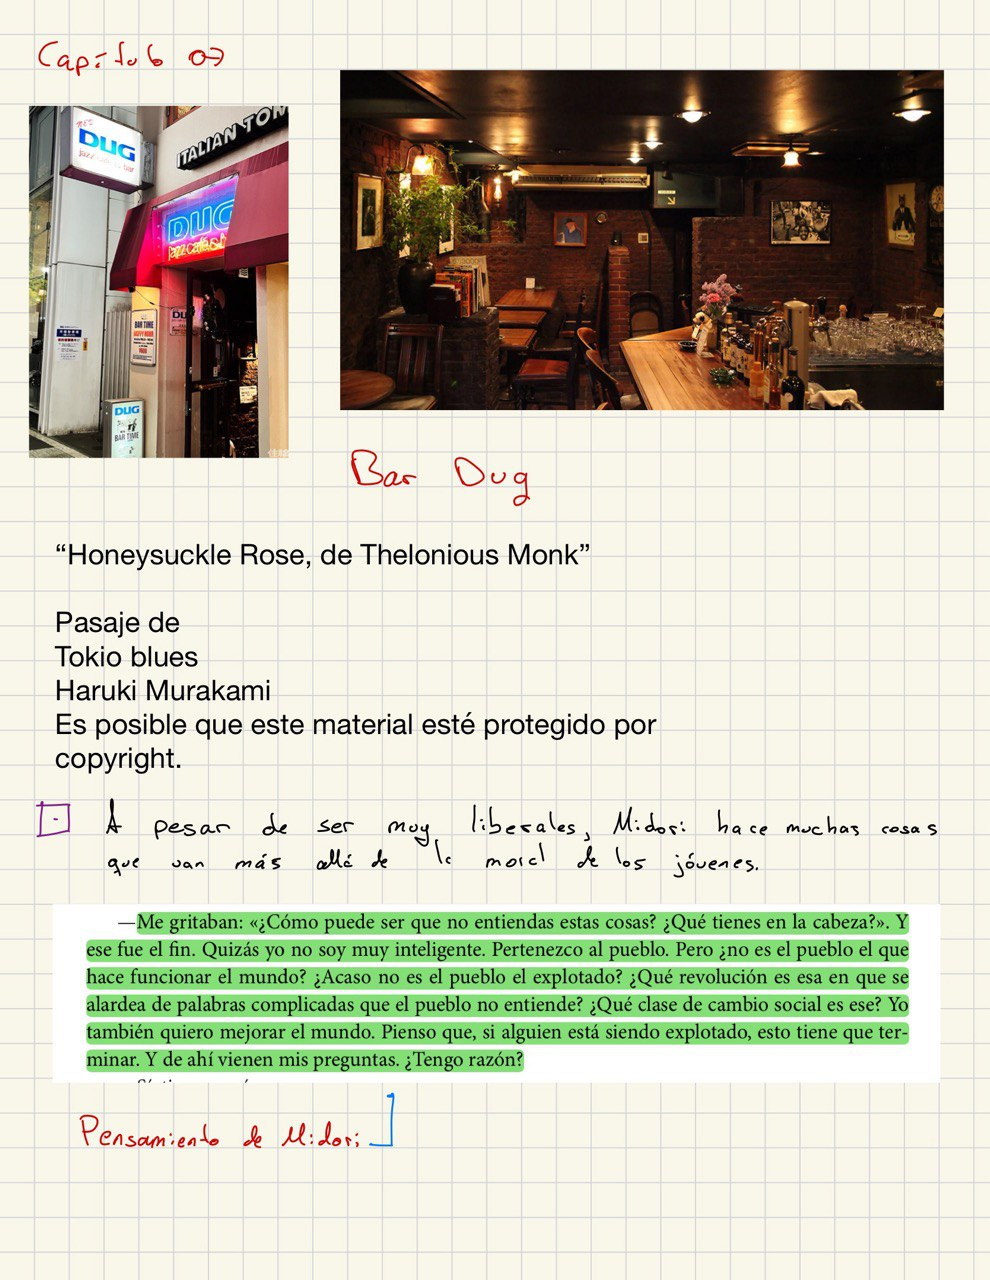 Capítulo 07
DUG
jazz café & bar
ITALIAN TOM
DUG
jazz café &
DU
BAR TIME
HAPPY HOUR
DUG
BAR TIME
Bar Dug
“Honeysuckle Rose, de Thelonious Monk”
Pasaje de
Tokio blues
Haruki Murakami
Es posible que este material esté protegido por
copyright.
A pesar de ser muy liberales, Midori hace muchas cosas
que van más allá de la moral de los jóvenes.
—Me gritaban: «¿Cómo puede ser que no entiendas estas cosas? ¿Qué tienes en la cabeza?». Y
ese fue el fin. Quizás yo no soy muy inteligente. Pertenezco al pueblo. Pero ¿no es el pueblo el que
hace funcionar el mundo? ¿Acaso no es el pueblo el explotado? ¿Qué revolución es esa en que se
alardea de palabras complicadas que el pueblo no entiende? ¿Qué clase de cambio social es ese? Yo
también quiero mejorar el mundo. Pienso que, si alguien está siendo explotado, esto tiene que ter-
minar. Y de ahí vienen mis preguntas. ¿Tengo razón?
Pensamiento de Midori